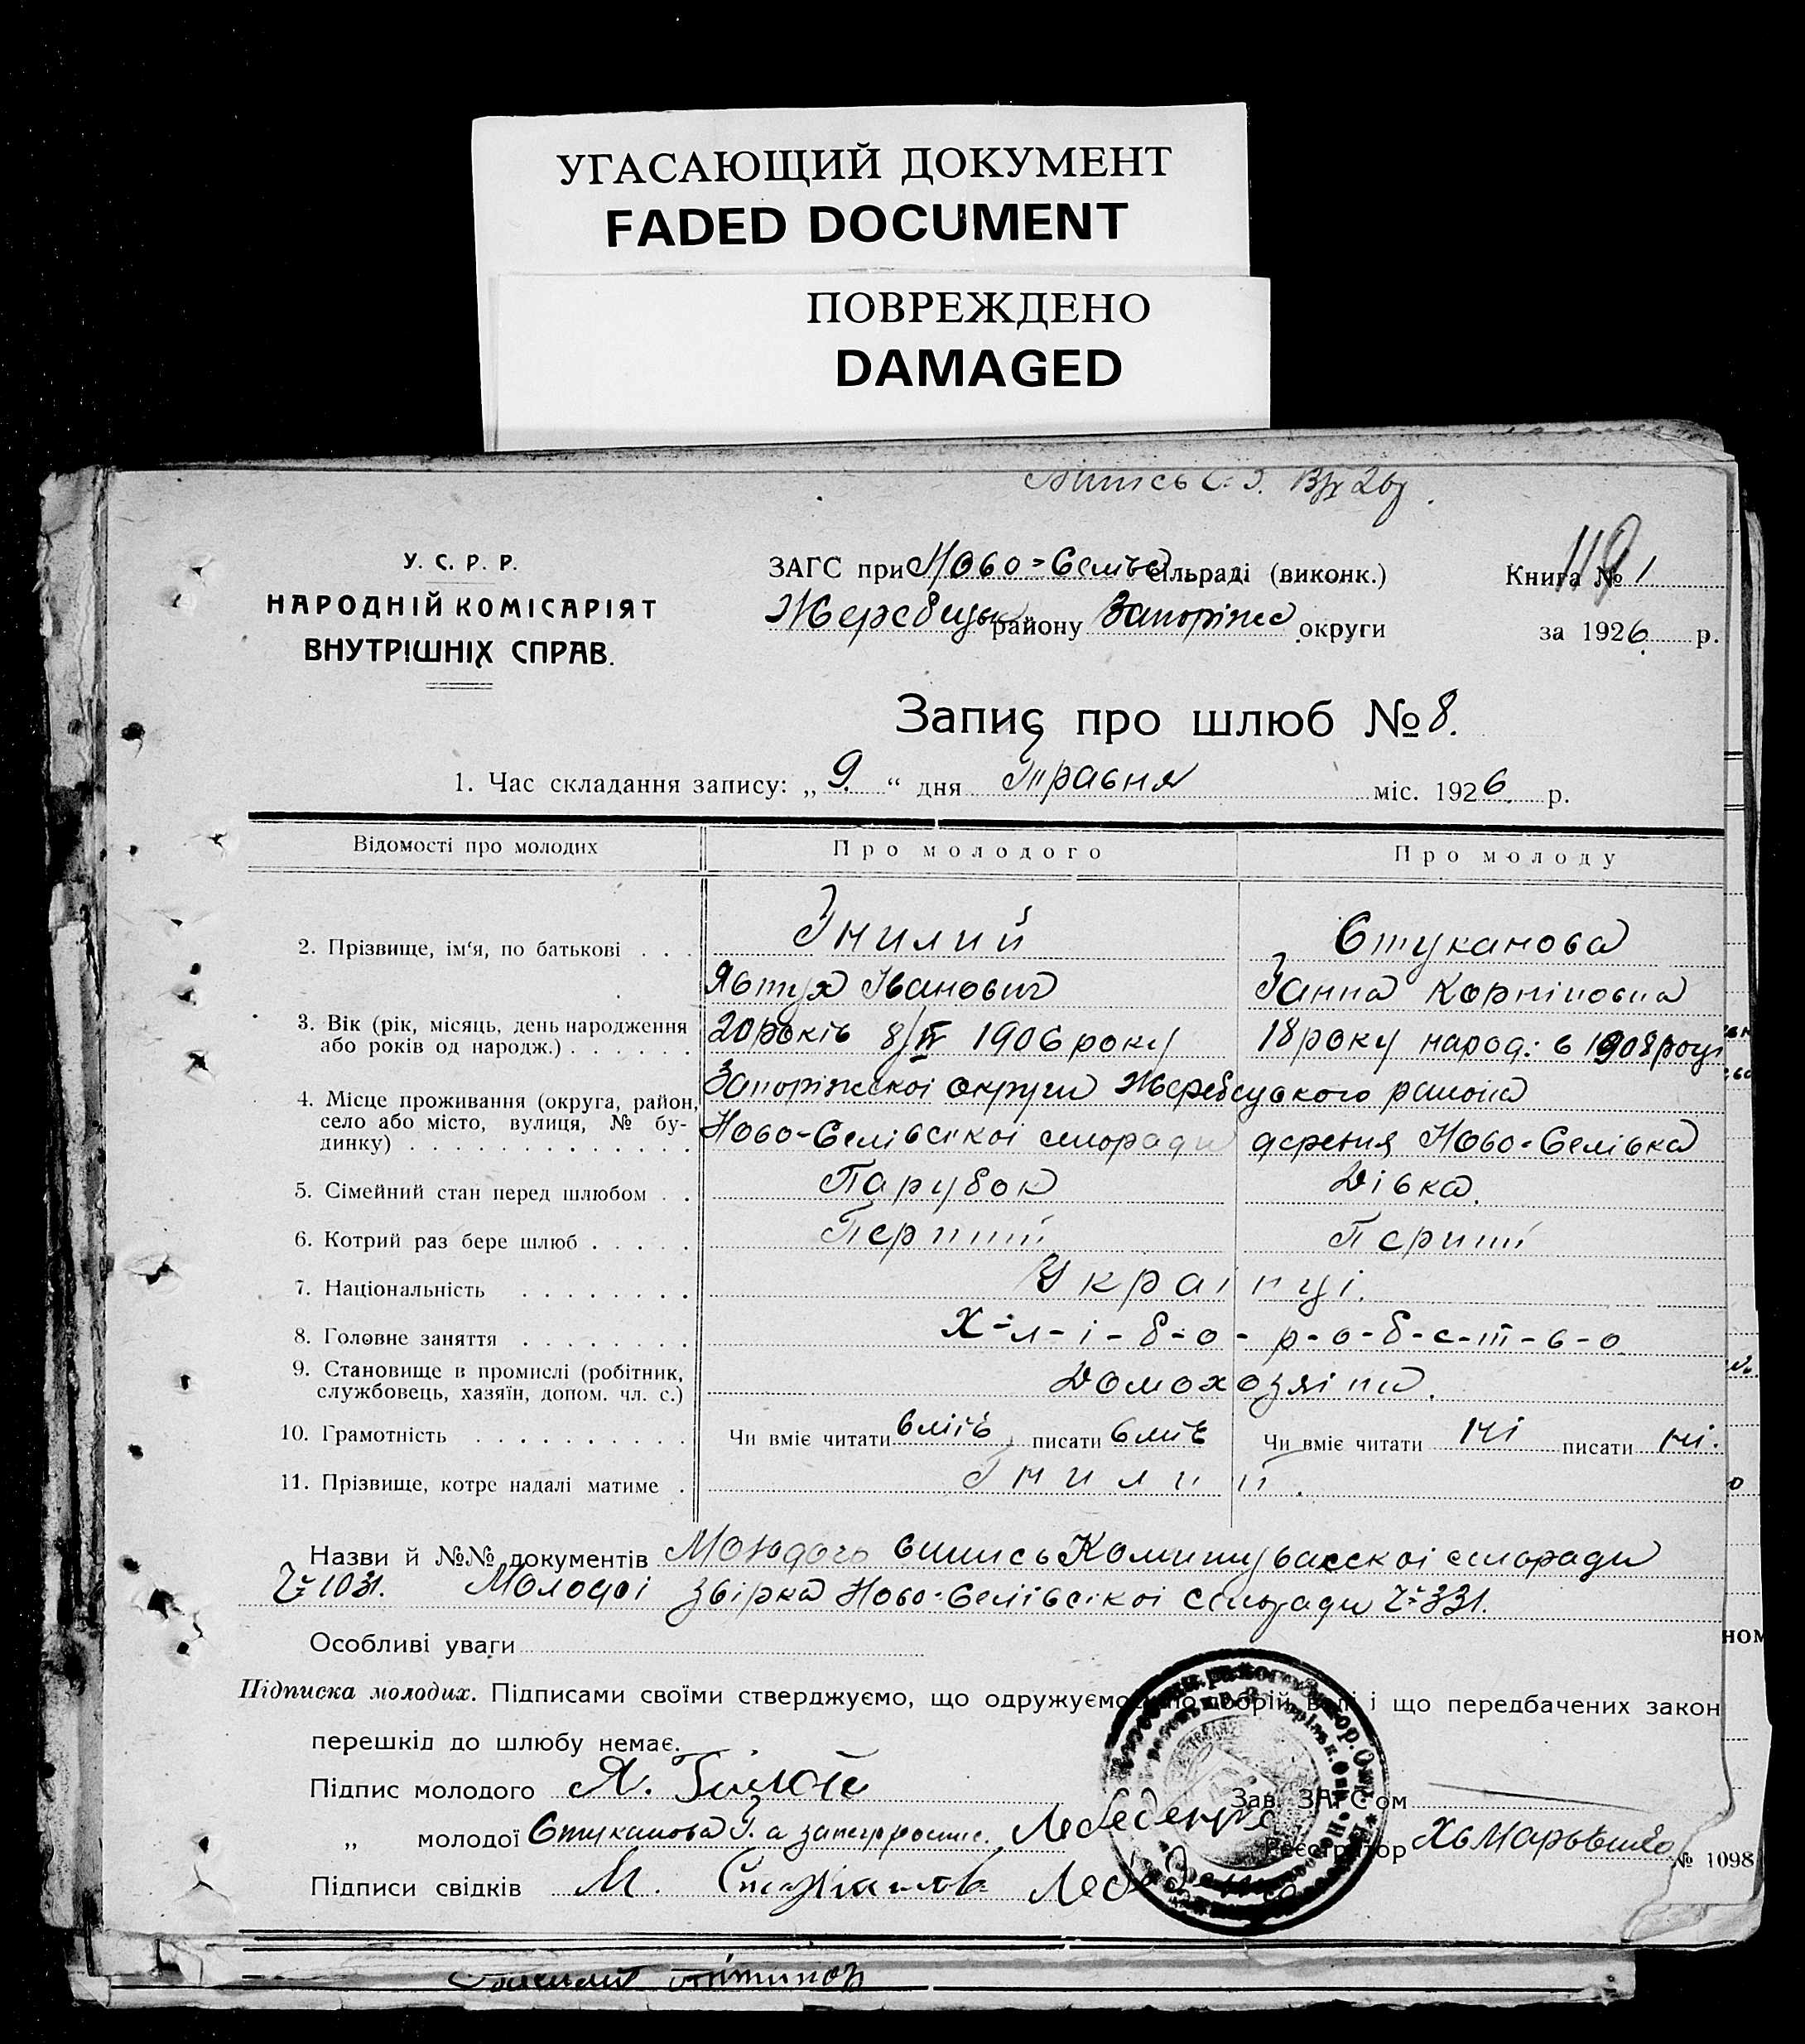 УГАСАЮЩИЙ ДОКУМЕНТ
FADED DOCUMENT
ПОВРЕЖДЕНО
DAMAGED
119
У. С. Р. Р.
НАРОДНІЙ КОМІСАРІЯТ
ВНУТРІШНІХ СПРАВ.
ЗАГС при Ново=Селів сільраді (виконк.)
Жеребецьк району Запоріжс округи
Книга № 1
за 1926 р.
Запис про шлюб № 8.
1. Час складання запису: „ 9. “ дня Травня міс. 1926 р.
Відомості про молодих Про молодого Про молоду
2. Прізвище, ім'я, по батькові . . . Гнилий Стуканова
Явтух Іванович Ганна Корніповна
3. Вік (рік, місяць, день народження або років од народж.) . . . . . . 20 років 8/IV 1906 року 18 року народ: в 1908 році
4. Місце проживання (округа, район, село або місто, вулиця, № будинку) . . . . . . . . . . . . . Запоріжскоі округи Жеребецького раиона
Ново-Селівскоі сілоради дереня Ново-Селівка
5. Сімейний стан перед шлюбом . . Парубок Дівка.
6. Котрий раз бере шлюб . . . . . Перший Перший
7. Національність . . . . . . . . Українці.
8. Головне заняття . . . . . . . . Х-л-і-б-о-р-о-б-с-т-в-о
9. Становище в промислі (робітник, службовець, хазяїн, допом. чл. с.) Домохозяіни.
10. Грамотність . . . . . . . . . . Чи вміє читати вміє писати вміє Чи вміє читати ні писати ні.
11. Прізвище, котре надалі матиме . Гнилий.
Назви й №№ документів Молодого випись Комишувасскоі сілоради
Ч= 1031. Молодоі звірка Ново-Селівскоі Сілоради Ч= 331.
Особливі уваги
Підписка молодих. Підписами своїми стверджуємо, що одружуємось по добрій волі і що передбачених закон
перешкід до шлюбу немає.
Підпис молодого Я. Гнилой
Зав. ЗАГС'ом
„ молодої Стуканова Г. а за неграмотн. Лебеденко
Реєстратор
Підписи свідків М. Стуканов Лебеденко
№ 1098